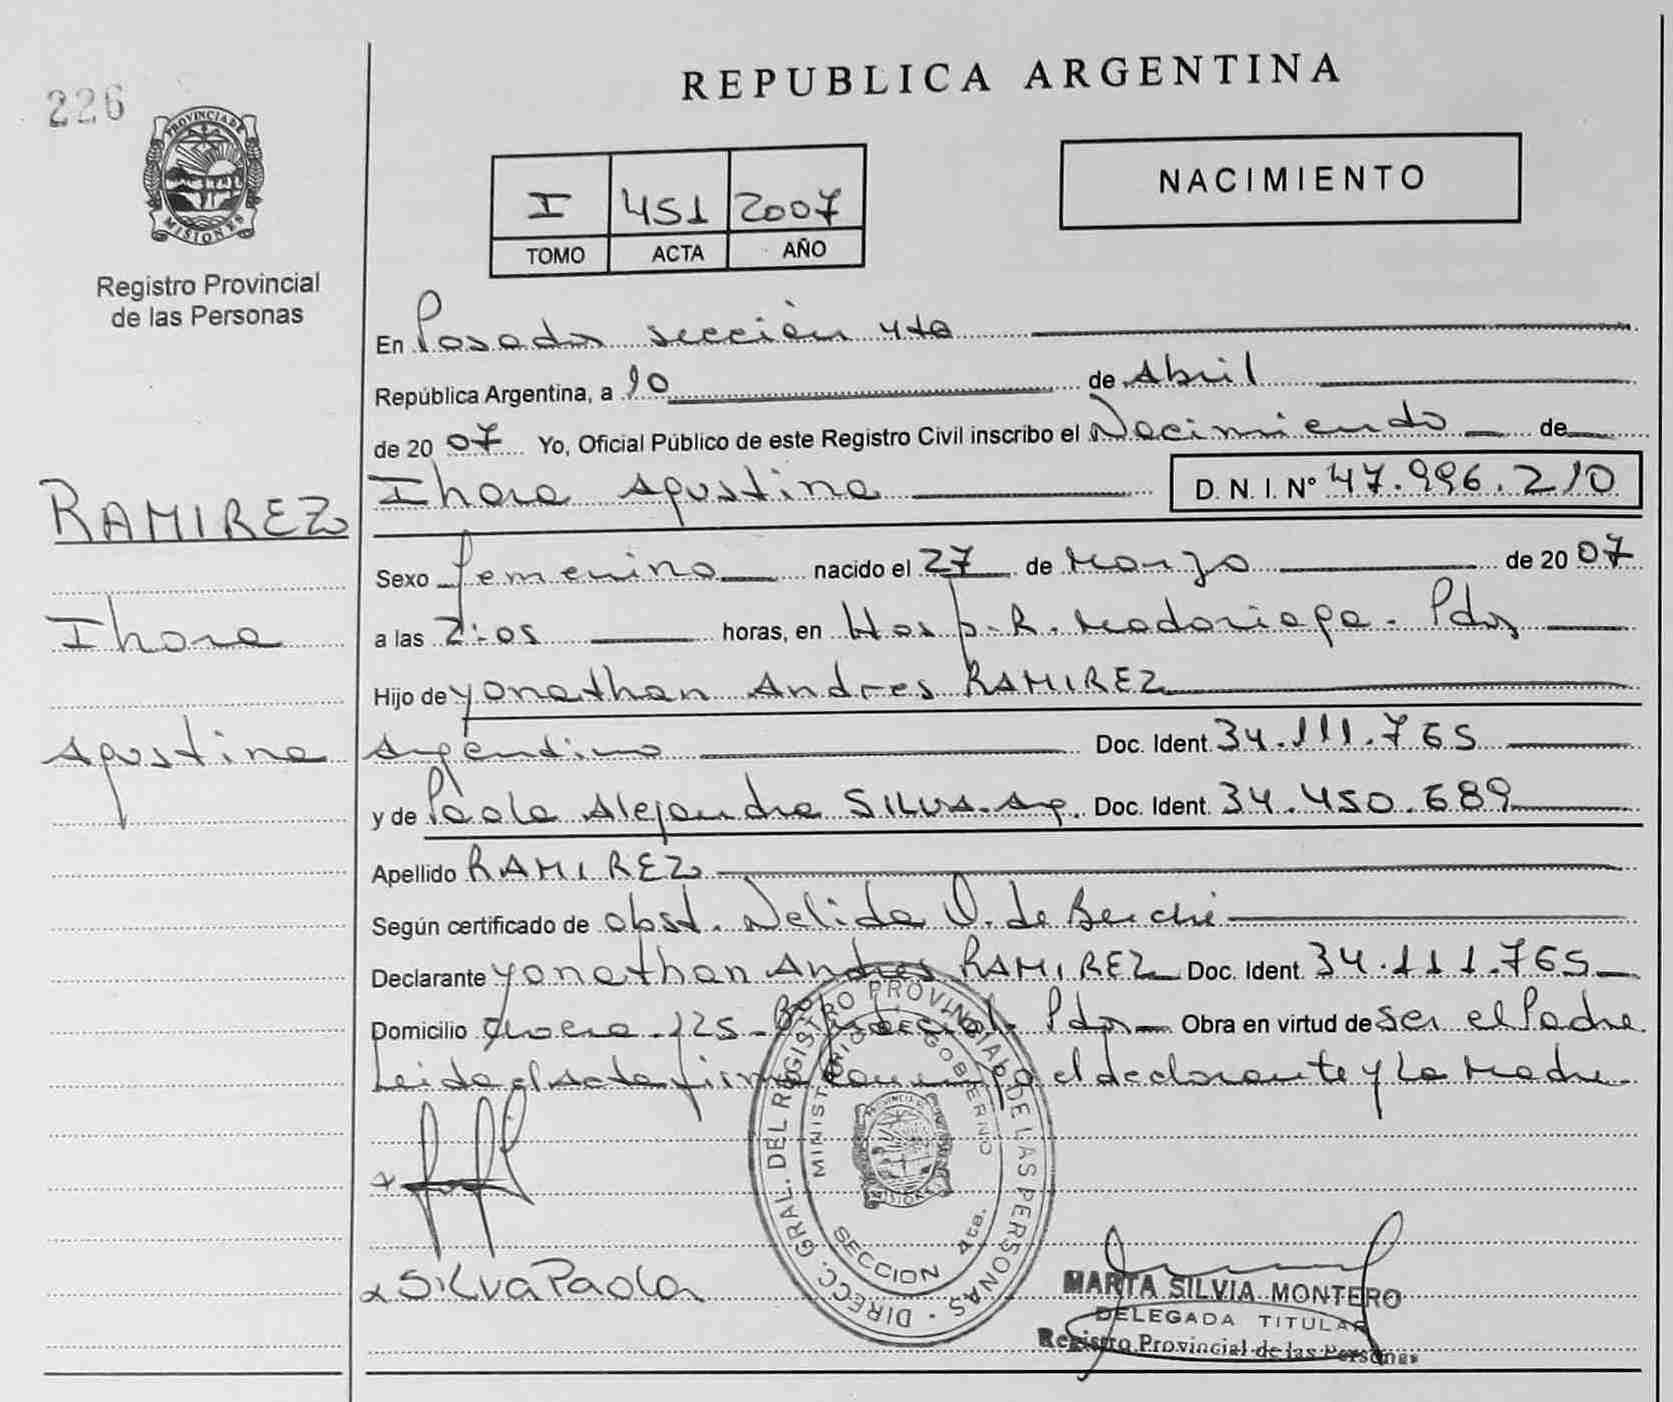 226
REPUBLICA ARGENTINA
PROVINCIA DE
MISIONES
Registro Provincial
de las Personas
I 451 2007
TOMO ACTA AÑO
NACIMIENTO
En Posadas sección 4ta
República Argentina, a 10 de Abril
de 2007 Yo, Oficial Público de este Registro Civil inscribo el Nacimiento de
Ihara Agustina D. N. I. N° 47.996.210
RAMIREZ
Sexo femenino nacido el 27 de Marzo de 2007
Ihara
a las 2:05 horas, en Hosp. R. Madariaga. Pdas
Hijo de Yonathan Andres RAMIREZ
Agustina
Argentino Doc. Ident. 34.111.765
y de Paola Alejandra SILVA. Arg. Doc. Ident. 34.450.689
Apellido RAMIREZ
Según certificado de obst. Nelida de
Declarante Yonathan Andres RAMIREZ Doc. Ident. 34.111.765
Domicilio 225 Pdas Obra en virtud de ser el Padre
Leida el Acta firma conmigo el declarante y La Madre.
SILva Paola
DIRECC. GRAL. DEL REGISTRO PROVINCIAL DE LAS PERSONAS
MINISTERIO GOBIERNO
PROVINCIA DE
MISIONES
SECCION 4ta.
MARTA SILVIA MONTERO
DELEGADA TITULAR
Registro Provincial de las Personas